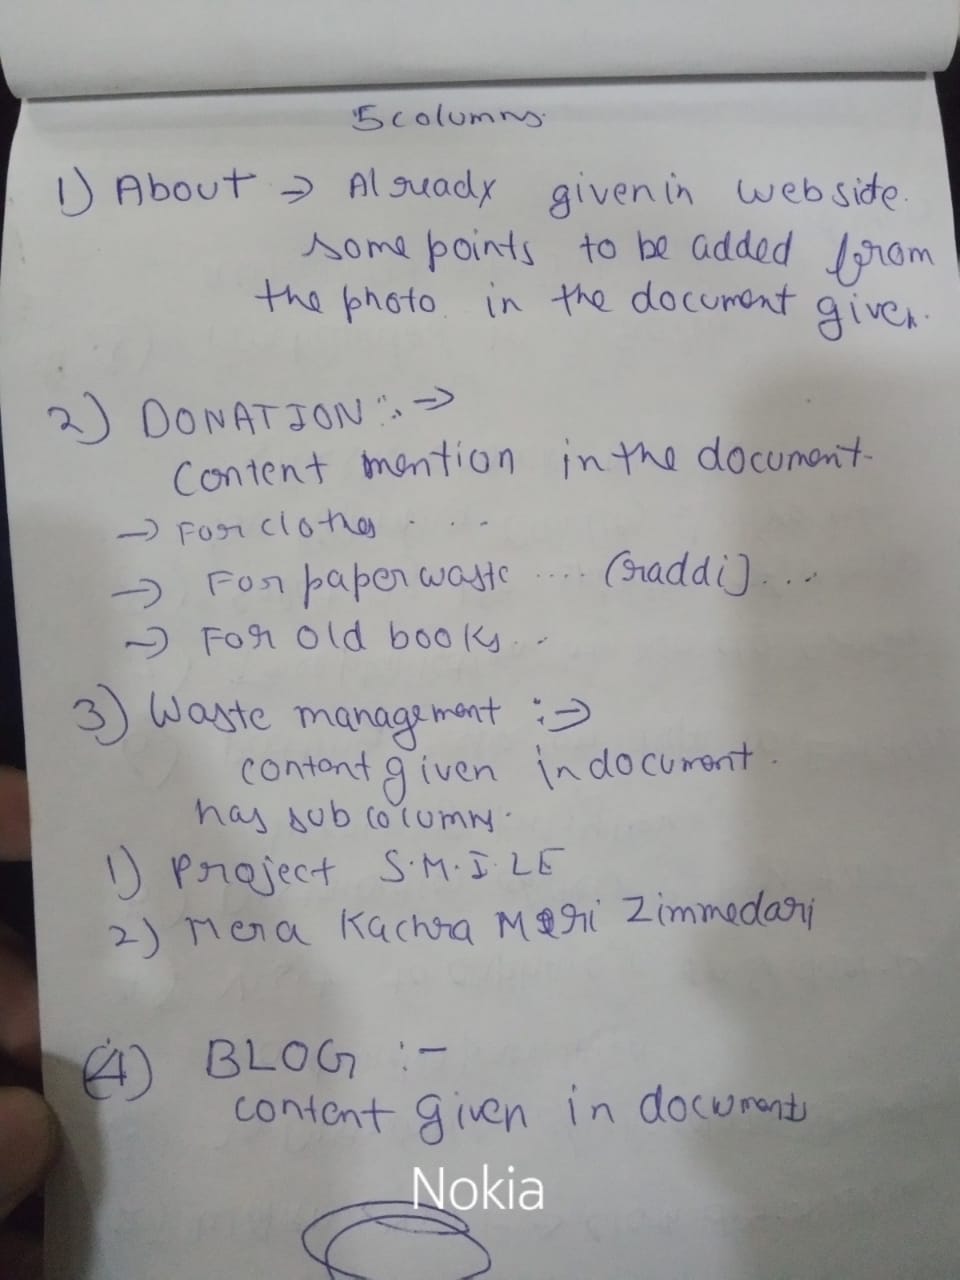 5 columns.
1) About → Already given in webside.
some points to be added from
the photo in the document given.
2) DONATION :. →
Content mention in the document-
→ For clothes . . .
→ For paper waste .... (raddi) ...
→ For old books. ..
3) Waste management :→
content given in document.
has sub columns.
1) Project S.M.I.LE
2) Mera Kachra Meri Zimmedari
(4) BLOG :-
content given in documents
Nokia